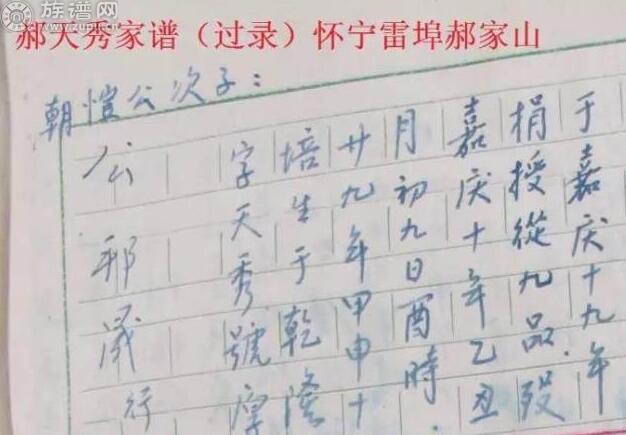 族谱网
郝天秀家谱（过录）怀宁雷埠郝家山
朝愷公次子：
公邦行
字天秀號厚
培生于乾隆
廿九年甲申十
月初九日酉時.
嘉庆十年乙丑
捐授從九品.殁
于嘉庆十九年